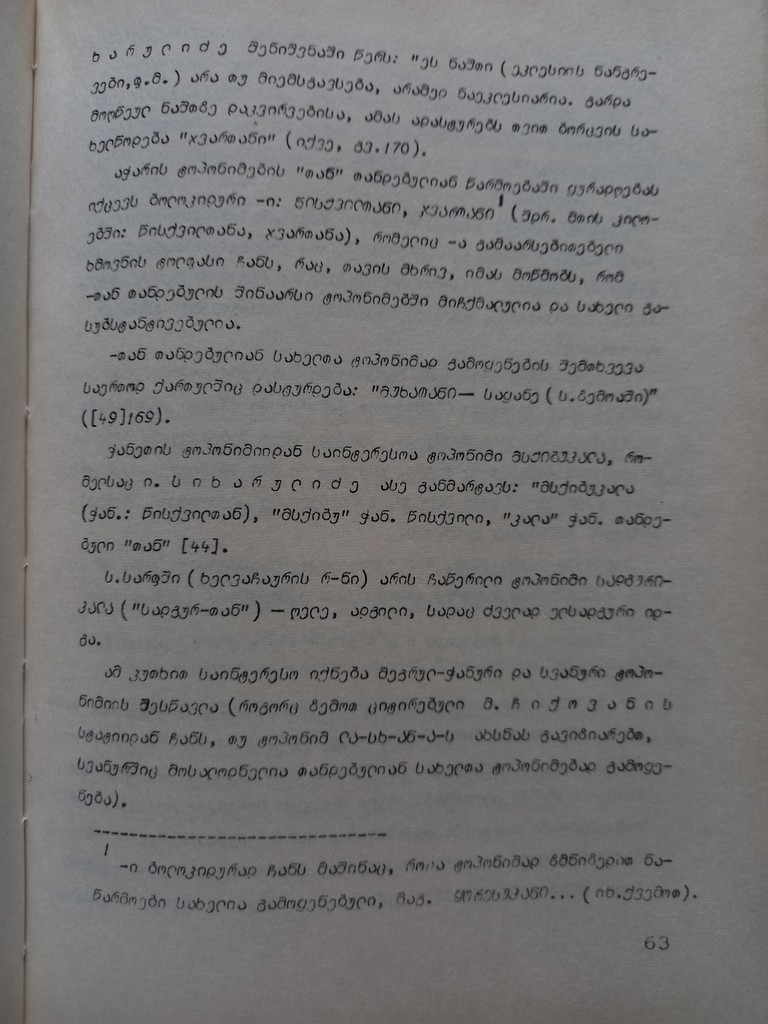 ხ ა რ უ ლ ი ძ ე შენიშვნაში წერს: "ეს ნაშთი ( ეკლესიის ნანგრე-
ვები,ფ.მ.) არა თუ მიემსგავსება, არამედ ნაეკლესიარია. გარდა
მოღწეულ ნაშთზე დაკვირვებისა, ამას ადასტურებს თვით ბორცვის სა-
ხელწოდება "ჯვართანი" ( იქვე, გვ.170).
აჭარის ტოპონიმების "თან" თანდებულიან წარმოებაში ყურადღებას
იქცევს ბოლოკიდური -ი: წისქვილთანი, ჯვართანი¹ (შდრ. მთის კილო-
ებში: წისქვილთანა, ჯვართანა), რომელიც -ა გამაარსებითებელი
ხმოვნის ტოლფასი ჩანს, რაც, თავის მხრივ, იმას მოწმობს, რომ
-თან თანდებულის შინაარსი ტოპონიმებში მიჩქმალულია და სახელი გა-
სუბსტანტივებულია.
-თან თანდებულიან სახელთა ტოპონიმად გამოყენების შემთხვევა
საერთოდ ქართულშიც დასტურდება: "მუხათანი— საყანე ( ს.ზემოაში)"
([49]169).
ჭანეთის ტოპონიმიიდან საინტერესოა ტოპონიმი მსქიბუკალა, რო-
მელსაც ი. ს ი ხ ა რ უ ლ ი ძ ე ასე განმარტავს: "მსქიბუკალა
(ჭან.: წისქვილთან), "მსქიბუ" ჭან. წისქვილი, "კალა" ჭან. თანდე-
ბული "თან" [44].
ს.სარფში ( ხელვაჩაურის რ-ნი) არის ჩაწერილი ტოპონიმი სადგური-
კალა ("სადგურ-თან") — ღელე, ადგილი, სადაც ძველად ელსადგური იდ-
გა.
ამ კუთხით საინტერესო იქნება მეგრულ-ჭანური და სვანური ტოპო-
ნიმიის შესწავლა (როგორც ზემოთ ციტირებული მ. ჩ ი ქ ო ვ ა ნ ი ს
სტატიიდან ჩანს, თუ ტოპონიმ ლა-სხ-ან-ა-ს ახსნას გავიზიარებთ,
სვანურშიც მოსალოდნელია თანდებულიან სახელთა ტოპონიმებად გამოყე-
ნება).
1
-ი ბოლოკიდურად ჩანს მაშინაც, როცა ტოპონიმად ზმნიზედით ნა-
წარმოები სახელია გამოყენებული, მაგ. ყორესუკანი... ( იხ.ქვემოთ).
63